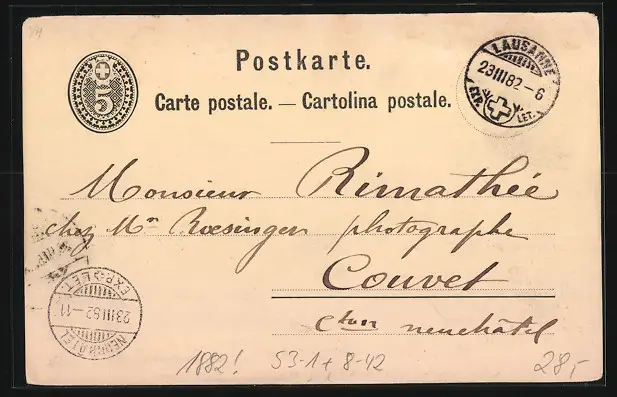 5
Postkarte.
Carte postale. — Cartolina postale.
LAUSANNE
23 III 82 – 6
EXP. LET.
Monsieur Rimathée
chez Mr Rœsinger photographe
Couvet
Cton neuchâtel
EXP. LET.
23 III 82 – 11
NEUCHATEL
1882! S3-1+8-42 28,-